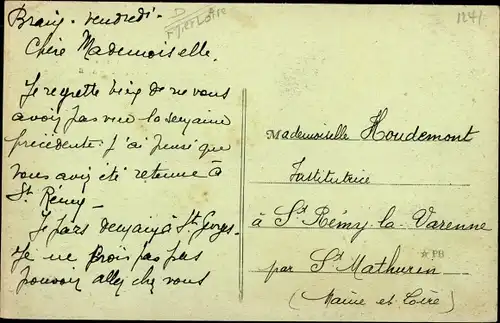 Brain - vendredi -
Chère Mademoiselle.
Je regrette bien de ne vous
avoir pas vue la semaine
précédente : j'ai pensé que
vous aviez été retenue à
St Rémy -
Je pars demain à St Georges.
Je ne crois pas pas
pouvoir aller chez vous
D
Mademoiselle Houdemont
Institutrice
à St Rémy la Varenne
par St Mathurin
(Maine et Loire)
PB